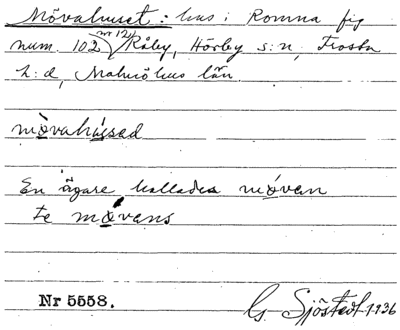 Mövahuset: hus i Romna fig
num. 102 (nr 12) Råby, Hörby s:n, Frosta
h:d, Malmöhus län.
mövahúsed
En ägare kallades mövan
te mövans
Nr 5558.
G Sjöstedt 1936